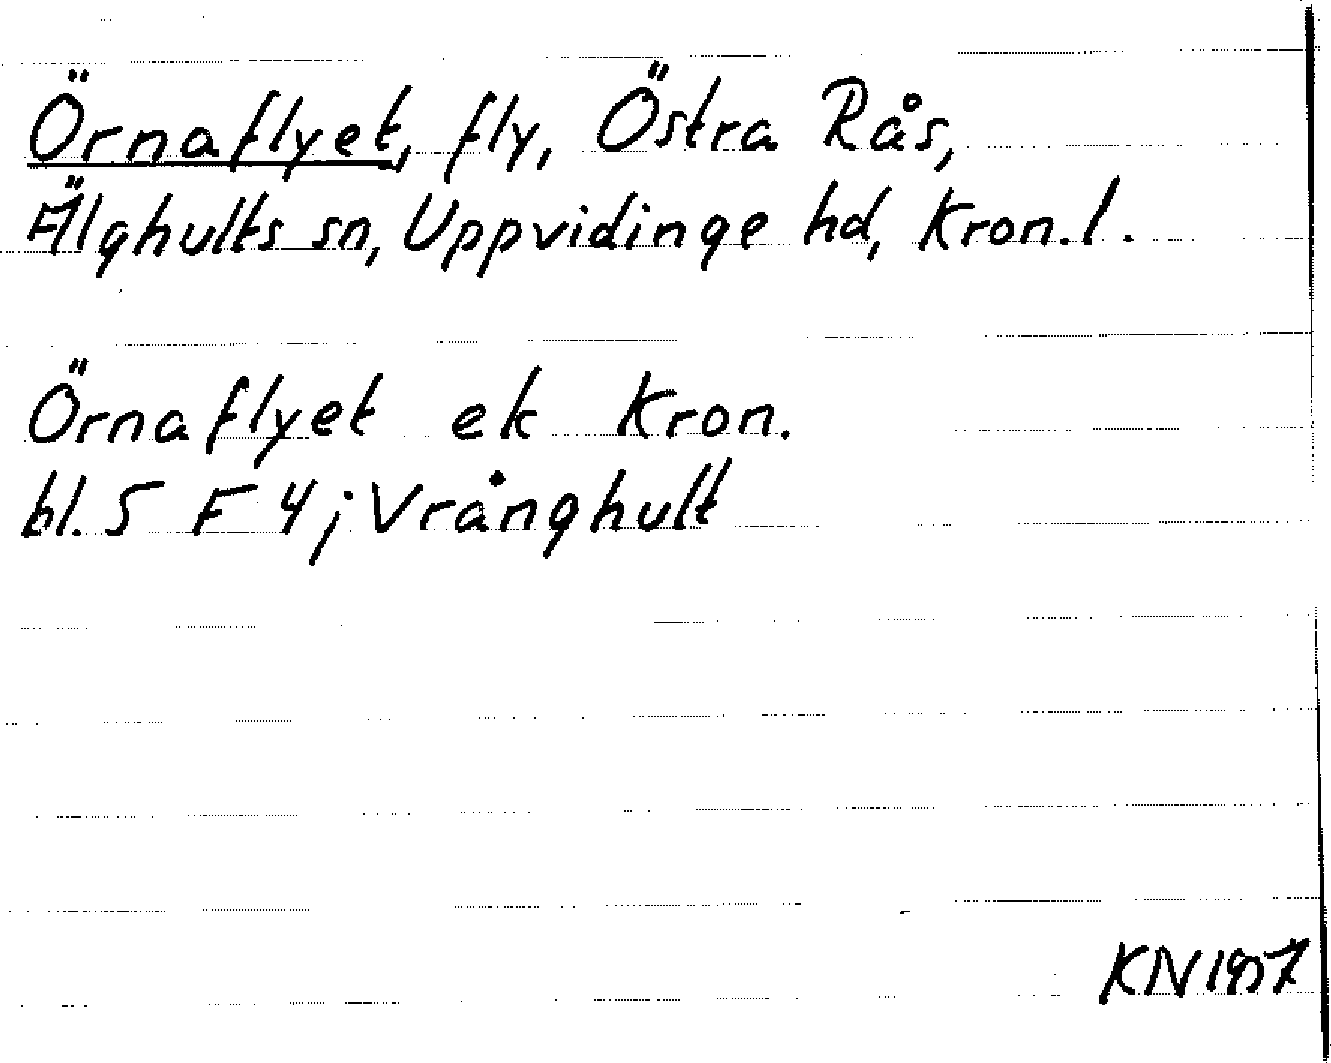 Örnaflyet, fly, Östra Rås,
Älghults sn, Uppvidinge hd, Kron. l.
Örnaflyet ek Kron.
bl. 5 F 4 j Vrånghult
KN 1957